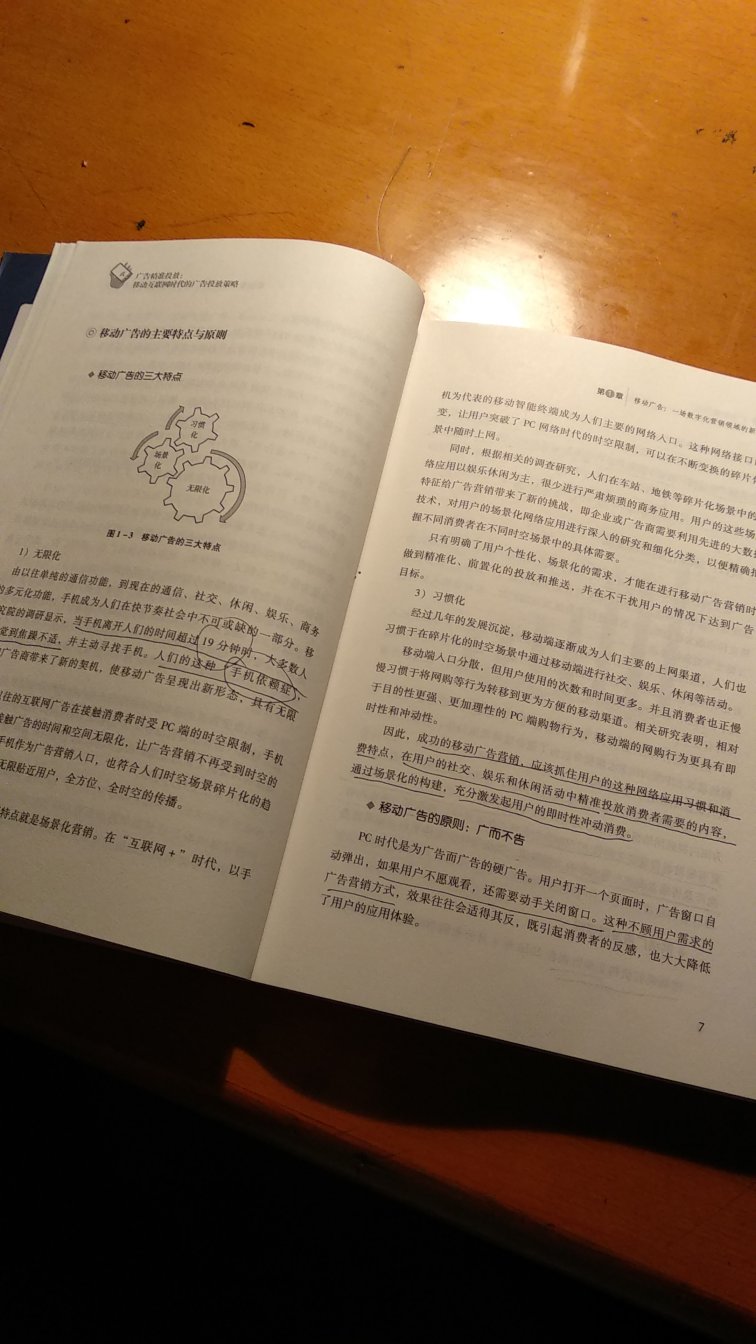 广告精准投放：
移动互联网时代的广告投放策略
移动广告的主要特点与原则
移动广告的三大特点
习惯
化
场景
化
无限化
图1-3 移动广告的三大特点
1）无限化
由以往单纯的通信功能，到现在的通信、社交、休闲、娱乐、商务
的多元化功能，手机成为人们在快节奏社会中不可或缺的一部分。移
究院的调研显示，当手机离开人们的时间超过19分钟时，大多数人
觉到焦躁不适，并主动寻找手机。人们的这种“手机依赖症”，
广告商带来了新的契机，使移动广告呈现出新形态，具有无限
以往的互联网广告在接触消费者时受PC端的时空限制，手机
接触广告的时间和空间无限化，让广告营销不再受到时空的
手机作为广告营销入口，也符合人们时空场景碎片化的趋
无限贴近用户，全方位、全时空的传播。
特点就是场景化营销。在“互联网+”时代，以手
第1章 移动广告：一场数字化营销领域的新
机为代表的移动智能终端成为人们主要的网络入口。这种网络接口
变，让用户突破了PC网络时代的时空限制，可以在不断变换的碎片
景中随时上网。
同时，根据相关的调查研究，人们在车站、地铁等碎片化场景中的
络应用以娱乐休闲为主，很少进行严肃烦琐的商务应用。用户的这些场
特征给广告营销带来了新的挑战，即企业或广告商需要利用先进的大数
技术，对用户的场景化网络应用进行深入的研究和细化分类，以便精确
握不同消费者在不同时空场景中的具体需要。
只有明确了用户个性化、场景化的需求，才能在进行移动广告营销时
做到精准化、前置化的投放和推送，并在不干扰用户的情况下达到广告
目标。
3）习惯化
经过几年的发展沉淀，移动端逐渐成为人们主要的上网渠道，人们也
习惯于在碎片化的时空场景中通过移动端进行社交、娱乐、休闲等活动。
移动端入口分散，但用户使用的次数和时间更多。并且消费者也正慢
慢习惯于将网购等行为转移到更为方便的移动渠道。相关研究表明，相对
于目的性更强、更加理性的PC端购物行为，移动端的网购行为更具有即
时性和冲动性。
因此，成功的移动广告营销，应该抓住用户的这种网络应用习惯和消
费特点，在用户的社交、娱乐和休闲活动中精准投放消费者需要的内容，
通过场景化的构建，充分激发起用户的即时性冲动消费。
移动广告的原则：广而不告
PC时代是为广告而广告的硬广告。用户打开一个页面时，广告窗口自
动弹出，如果用户不愿观看，还需要动手关闭窗口。这种不顾用户需求的
广告营销方式，效果往往会适得其反，既引起消费者的反感，也大大降低
了用户的应用体验。
7